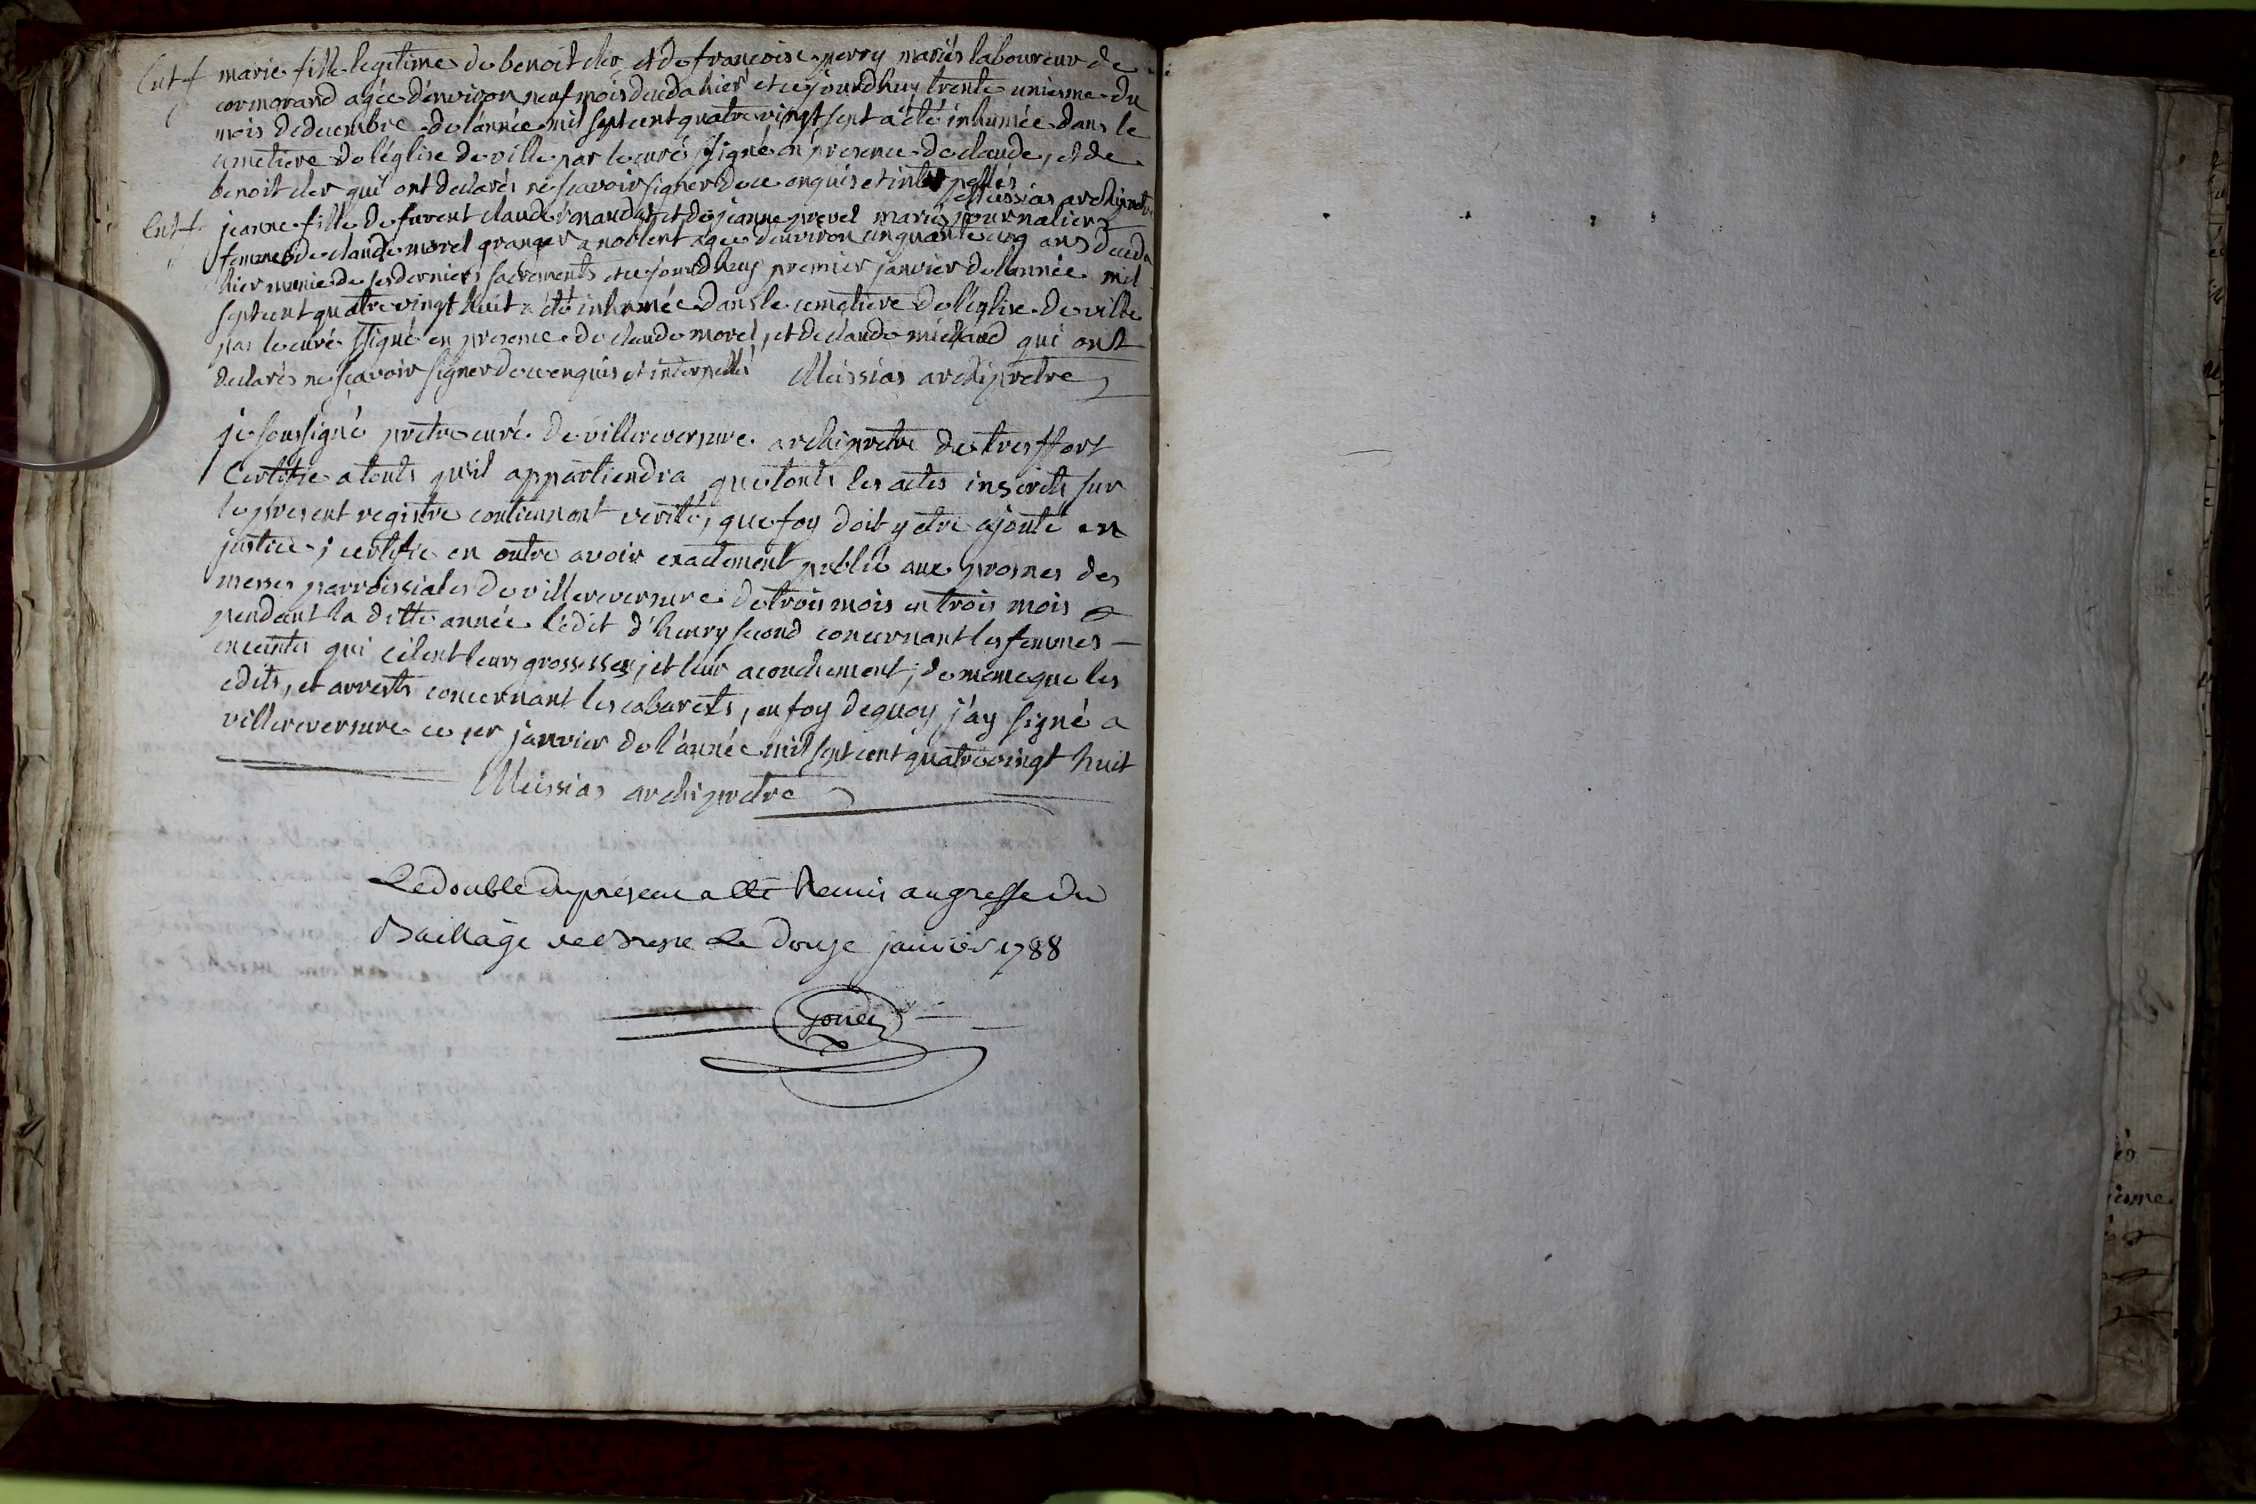 Ent f marie fille legitime de benoit cler et de francoise perry mariés laboureur de
cormorand agée d'environ neuf mois deceda hier et ce jourdhuy trente unieme du
mois de decembre de l'année mil sept cent quatre vingt sept a été inhumée dans le
cimetiere de l'église de ville par le curé ssigné en presence de claude, et de
benoit cler qui ont declarés ne scavoir signer de ce enquis et interpellés
Meissias archipretre
Ent f jeanne fille de furent claude et de jeanne prevel mariés journaliers
femme de claude morel granger a noblent agée d'environ cinquante cinq ans deceda
hier munie de ses derniers sacrements et ce jourdhuy premier janvier de l'année mil
sept cent quatre vingt huit a été inhumée dans le cimetiere de l'église de ville
par le curé ssigné en presence de claude morel, et de claude michaud qui ont
declarés ne scavoir signer de ce enquis et interpellés Meissias archipretre
je soussigné pretre curé de villereversure archipretre de tresffort
Certifie a touts qu'il appartiendra que touts les actes inscrits sur
le present registre contiennent verité, que foy doit y etre ajouté en
justice; certifie en outre avoir exactement publié aux prosnes des
messes parroissiales de villereversure de trois mois en trois mois
pendant la ditte année l'édit d'henry second concernant les femmes
enceintes qui célent leurs grossesses, et leur acouchement; de meme que les
edits, et arrests concernant les cabarets, en foy de quoy j'ay signé a
villereversure ce 1er janvier de l'année mil sept cent quatre vingt huit
Meissias archipretre
Le double du présent a été Remis au greffe du
Bailliage de Bresse Le Douze janvier 1788